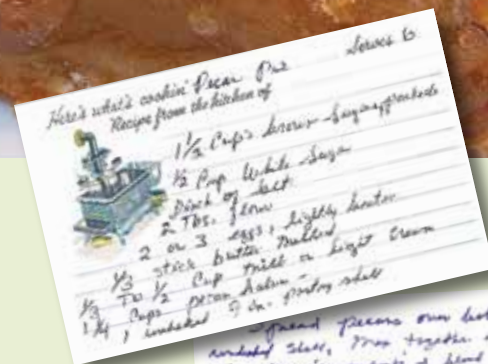 Serves 6
Here's what's cookin' Pecan Pie
Recipe from the kitchen of
1 1/2 Cups brown Sugar, packed
1/2 Cup White Sugar
Pinch of Salt
2 Tbs. flour
2 or 3 eggs, lightly beaten
1/3 stick butter melted
1/3 to 1/2 Cup milk or light Cream
1 1/4 Cups pecan halves
1, unbaked 9 in. pastry shell
Spread pecans over bottom
unbaked shell, Mix together